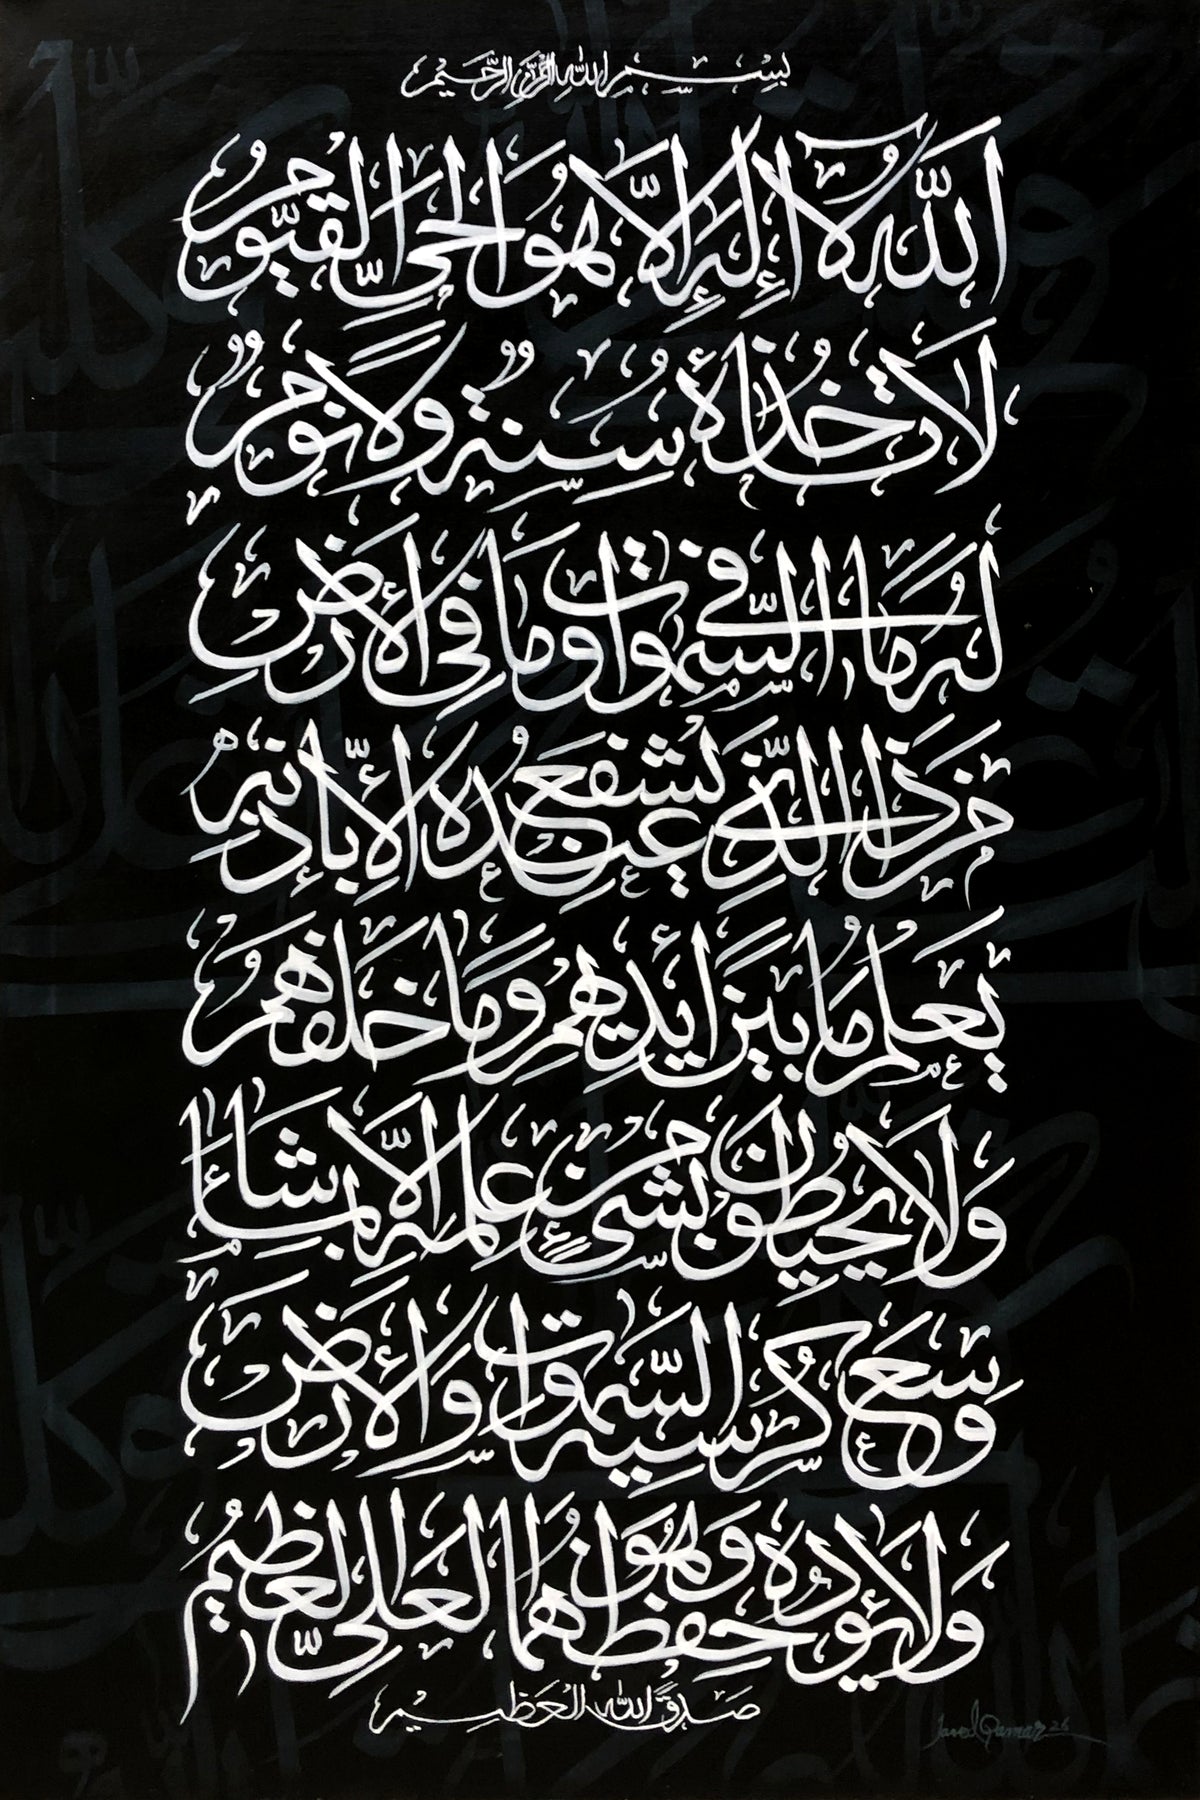 بِسْمِ اللهِ الرَّحْمٰنِ الرَّحِيْمِ
اَللّٰهُ لَا اِلٰهَ اِلَّا هُوَ الْحَىُّ الْقَيُّوْمُ
لَا تَاْخُذُهٗ سِنَةٌ وَّلَا نَوْمٌ
لَهٗ مَا فِى السَّمٰوٰتِ وَمَا فِى الْاَرْضِ
مَنْ ذَا الَّذِىْ يَشْفَعُ عِنْدَهٗ اِلَّا بِاِذْنِهٖ
يَعْلَمُ مَا بَيْنَ اَيْدِيْهِمْ وَمَا خَلْفَهُمْ
وَلَا يُحِيْطُوْنَ بِشَىْءٍ مِّنْ عِلْمِهٖ اِلَّا بِمَا شَاءَ
وَسِعَ كُرْسِيُّهُ السَّمٰوٰتِ وَالْاَرْضَ
وَلَا يَئُوْدُهٗ حِفْظُهُمَا وَهُوَ الْعَلِىُّ الْعَظِيْمُ
صَدَقَ اللهُ الْعَظِيْم
Javed Qamar 26